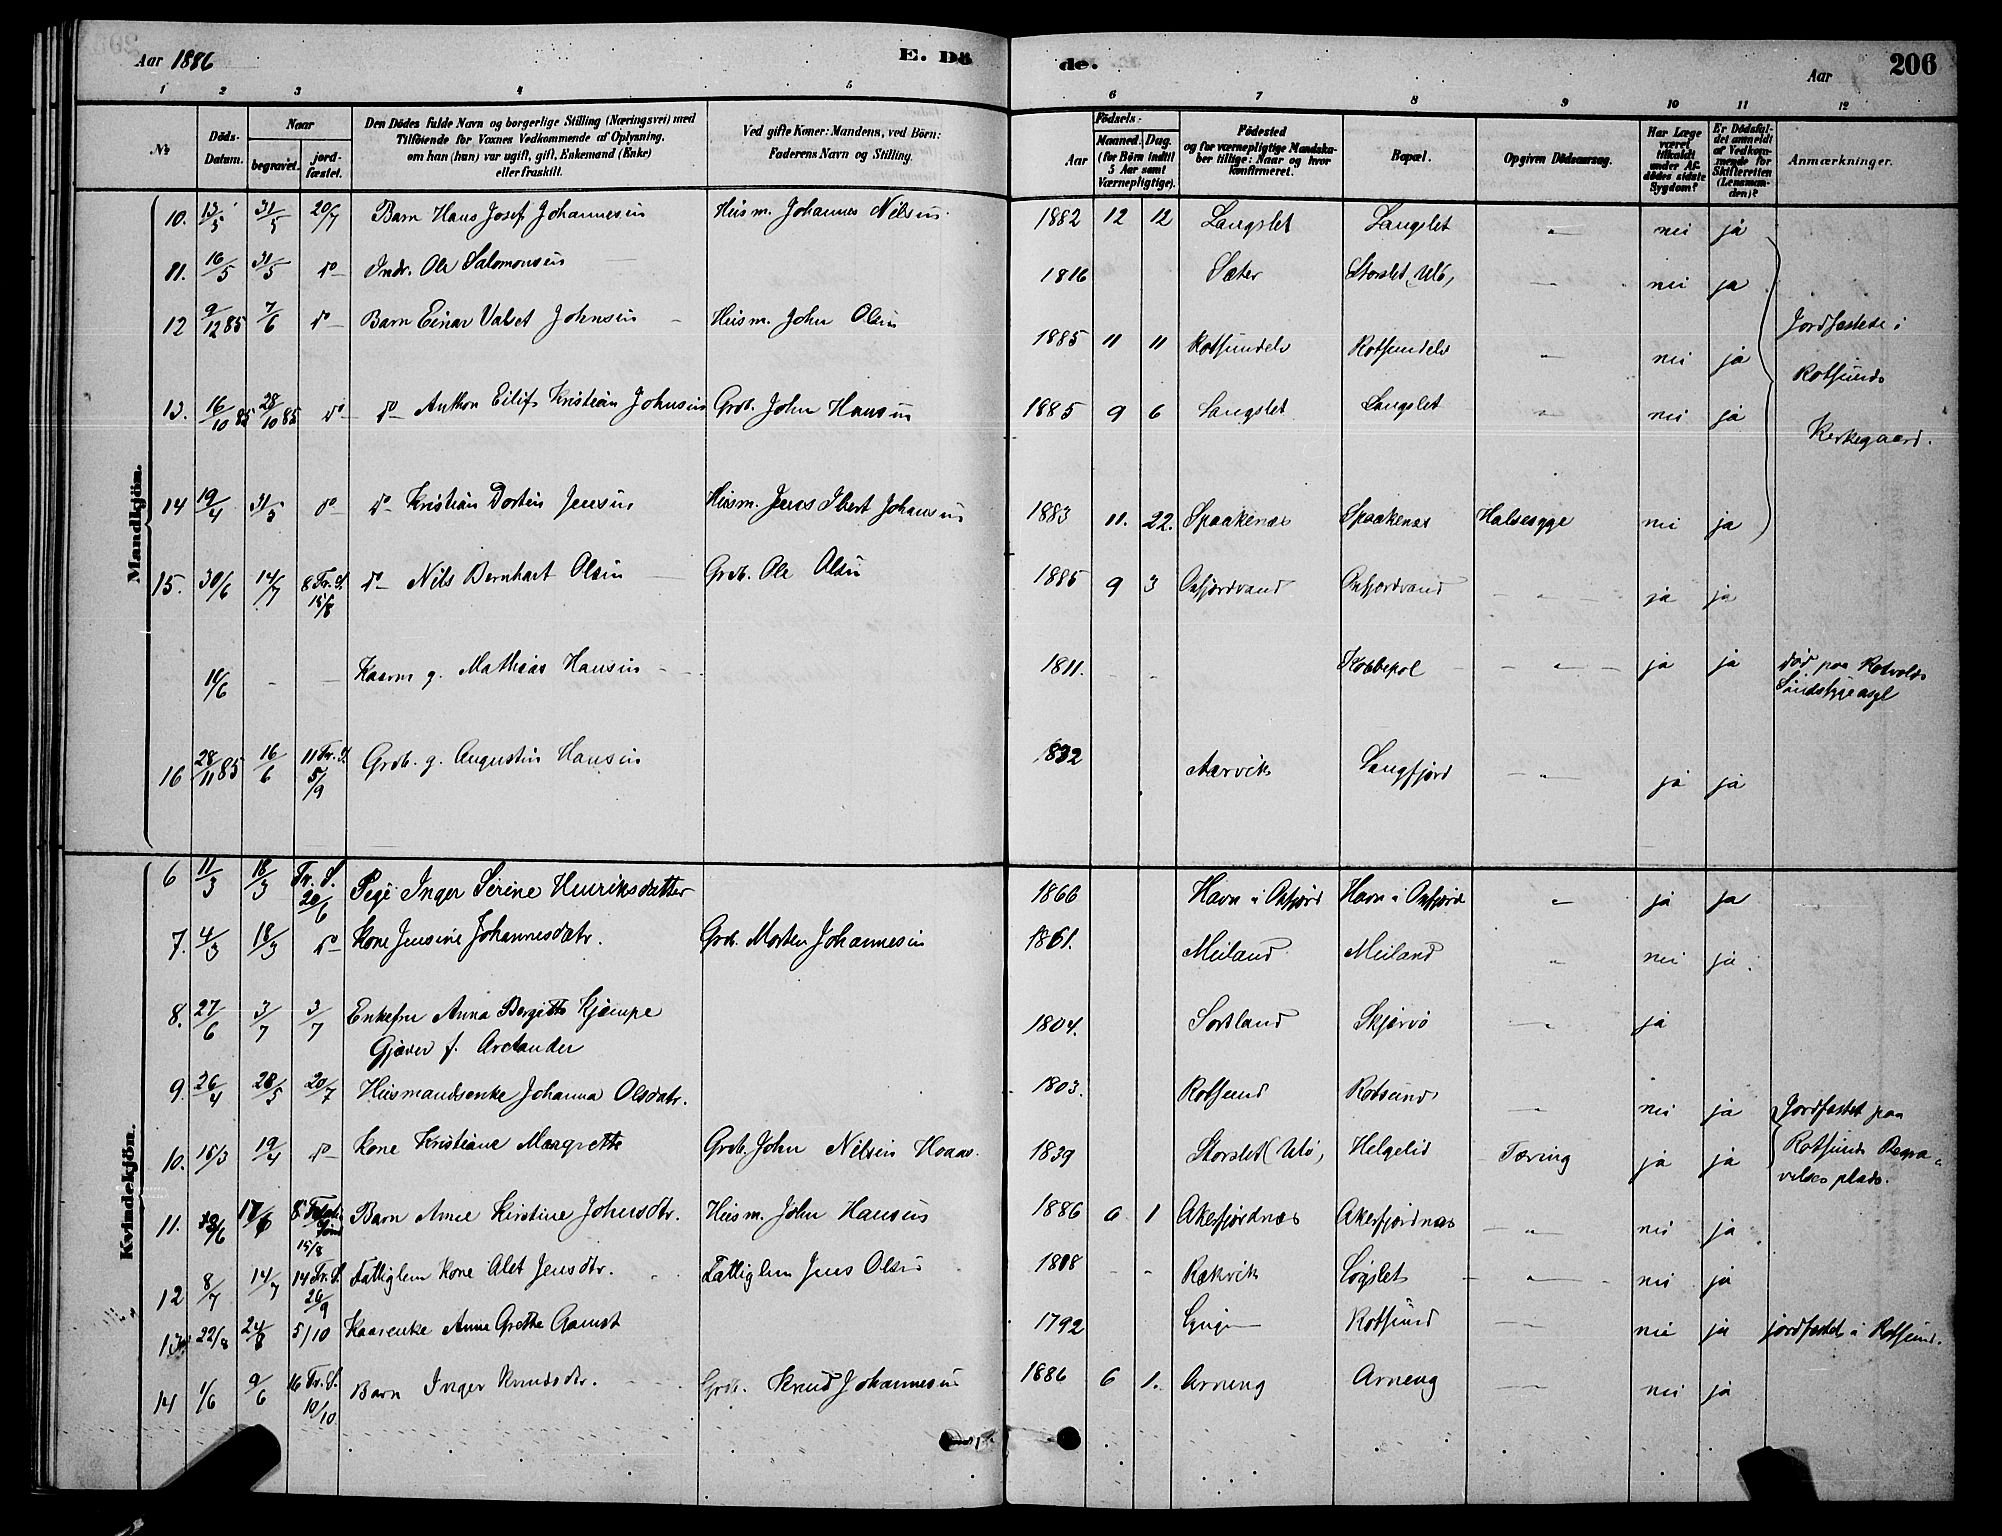 Aar 1886
E. Dö
de.
Aar
206
1 2 3 4 5 6 7 8 9 10 11 12
№
Döds-Datum.
Naar
begravet.
jord-fæstet.
Den Dödes fulde Navn og borgerlige Stilling (Næringsvei) med
Tilföiende for Voxnes Vedkommende af Oplysning,
om han (hun) var ugift, gift, Enkemand (Enke)
eller fraskilt.
Ved gifte Koner: Mandens, ved Börn:
Faderens Navn og Stilling.
Födsels-
Aar
Maaned. Dag.
(for Börn indtil
5 Aar samt
Værnepligtige).
Födested
og for værnepligtige Mandska-
ber tillige: Naar og hvor
konfirmeret.
Bopæl.
Opgiven Dödsaarsag.
Har Læge
været
tilkaldt
under Af-
dödes sidste
Sygdom?
Er Dödsfal-
det anmeldt
af Vedkom-
mende for
Skifteretten
(Lensman-
den)?
Anmærkninger.
Mandkjön.
10. 13/5 31/5 20/7 Barn Hans Josef Johannesen Husm. Johannes Nilsen 1882 12 12 Langslet Langslet " nei ja
11. 16/5 31/5 do Indr. Ole Salomonsen 1816 Sæter Storslet Ulö, nei ja
12 9/12 85 7/6 do Barn Einar Valset Johnsen Husm. John Olsen 1885 11 11 Rotsundelv Rotsundelv " nei ja
Jordfæstede i
Rotsunds
Kirkegaard.
13. 16/10 85 28/10 85 do do Anthon Eilif Kristian Johnsen Grdb. John Hansen 1885 9 6 Langslet Langslet " nei ja
14 19/4 31/5 do do Kristian Dorteus Jensen Husm. Jens Ibert Johansen 1883 11. 22. Spaakenæs Spaakenæs Halsesyge nei ja
15. 30/6 14/7 8 Tr. S. 15/8 do Nils Bernhart Olsen Grdb. Ole Olsen 1885 9 3 Oxfjordvand Oxfjordvand " ja ja
10/6 Kaarm g. Mathias Hansen 1811. Kobbepol " ja ja död paa Rotvolds
Sindsygeasyl
16 28/11 85 16/6 11 Tr. S. 5/9 Grdb. g. Augustin Hansen 1832 Aarvik Langfjord " ja ja
Kvindekjön.
6 11/3 18/3 Tr. S. 20/6 Pige Inger Serine Henriksdatter 1866 Havn i Oxfjord Havn i Oxfjord " ja ja
7. 4/3 18/3 do Kone Jensine Johannesdatr. Grdb. Morten Johannesen 1861. Meiland Meiland " nei ja
8. 27/6 3/7 3/7 Enkefru Anna Bergitte Kjempe
Gjæver f. Arctander 1804. Sortland Skjervö " ja
9. 26/4 28/5 20/7 Husmandsenke Johanna Olsdatr. 1803. Rotsund Rotsund " nei ja
Jordfæstet paa
Rotsunds Begra-
velsesplads.
10. 15/3 19/4 do Kone Kristiane Margrethe Grdb. John Nilsen Hoaas. 1839 Storslet (Ulö, Helgelid Tæring ja ja
11. 8 15/8 Barn Anne Kirstine Johnsdtr. Husm. John Hansen 1886 6 1 Akerfjordnæs Akerfjordnæs " nei ja
12 8/7 14/7 14 Tr. S. 26/9 Fattiglem Kone Alet Jensdtr. Fattiglem Jens Olsen 1808 Rækvik Løgslet " nei ja
13 22/8 24/8 5/10 Kaarenke Anne Grethe Aamot 1792 Lyngen Rotsund " nei ja jordfæstet i Rotsund.
14 1/6 9/6 16 Tr. S. 10/10. Barn Inger Knudsdtr. Grdb. Knud Johannesen 1886 6 1. Arneng Arneng nei ja